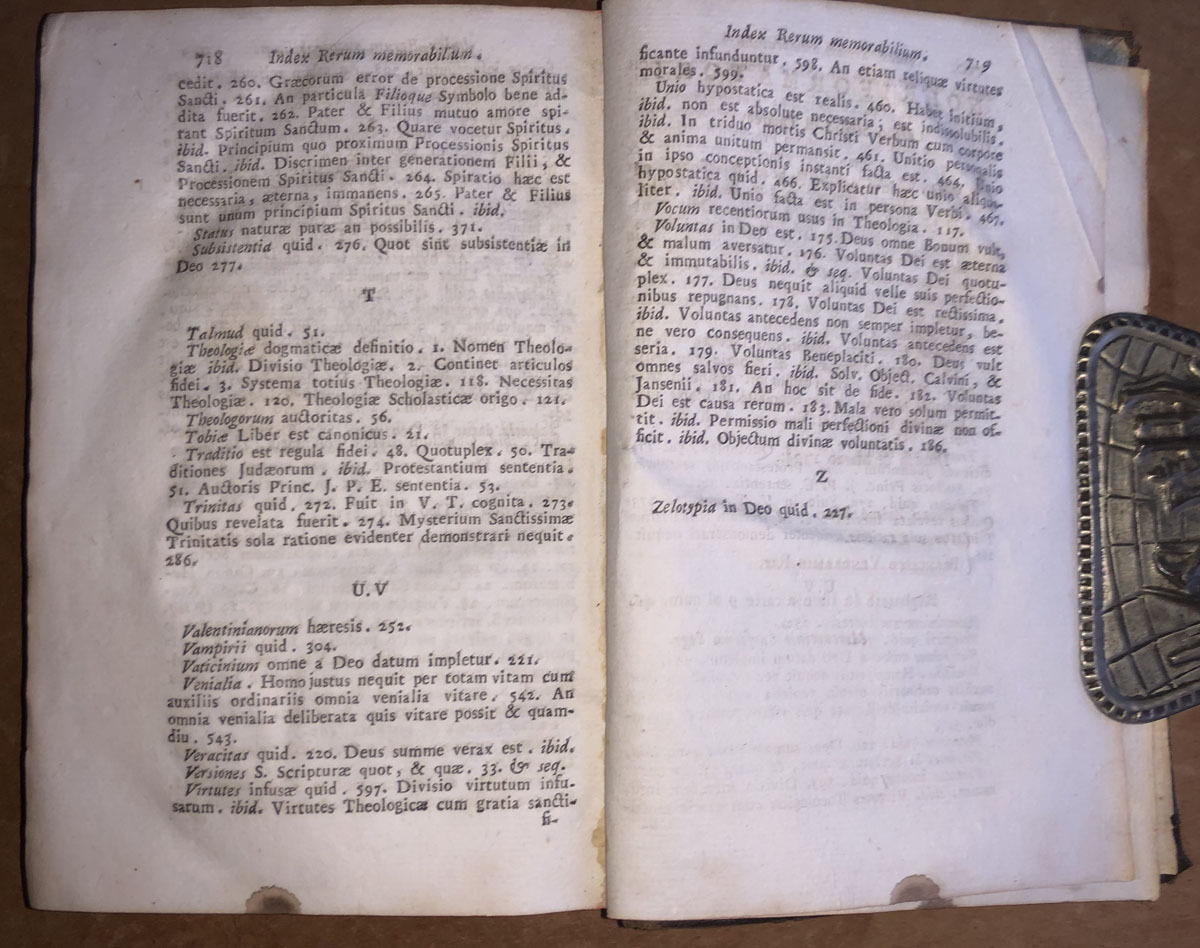 718 Index Rerum memorabilium.
cedit. 260. Græcorum error de processione Spiritus
Sancti. 261. An particula Filioque Symbolo bene ad-
dita fuerit. 262. Pater & Filius mutuo amore spi-
rant Spiritum Sanctum. 263. Quare vocetur Spiritus.
ibid. Principium quo proximum Processionis Spiritus
Sancti. ibid. Discrimen inter generationem Filii, &
Processionem Spiritus Sancti. 264. Spiratio hæc est
necessaria, æterna, immanens. 265. Pater & Filius
sunt unum principium Spiritus Sancti. ibid.
Status naturæ puræ an possibilis. 371.
Subsistentia quid. 276. Quot sint subsistentiæ in
Deo 277.
T
Talmud quid. 51.
Theologiæ dogmaticæ definitio. 1. Nomen Theolo-
giæ ibid. Divisio Theologiæ. 2. Continet articulos
fidei. 3. Systema totius Theologiæ. 118. Necessitas
Theologiæ. 120. Theologiæ Scholasticæ origo. 121.
Theologorum auctoritas. 56.
Tobiæ Liber est canonicus. 21.
Traditio est regula fidei. 48. Quotuplex. 50. Tra-
ditiones Judæorum. ibid. Protestantium sententia.
51. Auctoris Princ. J. P. E. sententia. 53.
Trinitas quid. 272. Fuit in V. T. cognita. 273.
Quibus revelata fuerit. 274. Mysterium Sanctissimæ
Trinitatis sola ratione evidenter demonstrari nequit.
286.
U.V
Valentinianorum hæresis. 252.
Vampirii quid. 304.
Vaticinium omne a Deo datum impletur. 221.
Venialia. Homo justus nequit per totam vitam cum
auxiliis ordinariis omnia venialia vitare. 542. An
omnia venialia deliberata quis vitare possit & quam-
diu. 543.
Veracitas quid. 220. Deus summe verax est. ibid.
Versiones S. Scripturæ quot, & quæ. 33. & seq.
Virtutes infusæ quid. 597. Divisio virtutum infu-
sarum. ibid. Virtutes Theologicæ cum gratia sancti-
fi-
Index Rerum memorabilium. 719
ficante infunduntur. 598. An etiam reliquæ virtutes
morales. 599.
Unio hypostatica est realis. 460. Habet initium.
ibid. non est absolute necessaria; est indissolubilis.
ibid. In triduo mortis Christi Verbum cum corpore
& anima unitum permansit. 461. Unitio personalis
in ipso conceptionis instanti facta est. 464. Unio
hypostatica quid. 466. Explicatur hæc unio aliqua-
liter. ibid. Unio facta est in persona Verbi. 467.
Vocum recentiorum usus in Theologia. 117.
Voluntas in Deo est. 175. Deus omne Bonum vult,
& malum aversatur. 176. Voluntas Dei est æterna
& immutabilis. ibid. & seq. Voluntas Dei quotu-
plex. 177. Deus nequit aliquid velle suis perfectio-
nibus repugnans. 178. Voluntas Dei est rectissima.
ibid. Voluntas antecedens non semper impletur, be-
ne vero consequens. ibid. Voluntas antecedens est
seria. 179. Voluntas Beneplaciti. 180. Deus vult
omnes salvos fieri. ibid. Solv. Object. Calvini, &
Jansenii. 181. An hoc sit de fide. 182. Voluntas
Dei est causa rerum. 183. Mala vero solum permit-
tit. ibid. Permissio mali perfectioni divinæ non of-
ficit. ibid. Objectum divinæ voluntatis. 186.
Z
Zelotypia in Deo quid. 227.